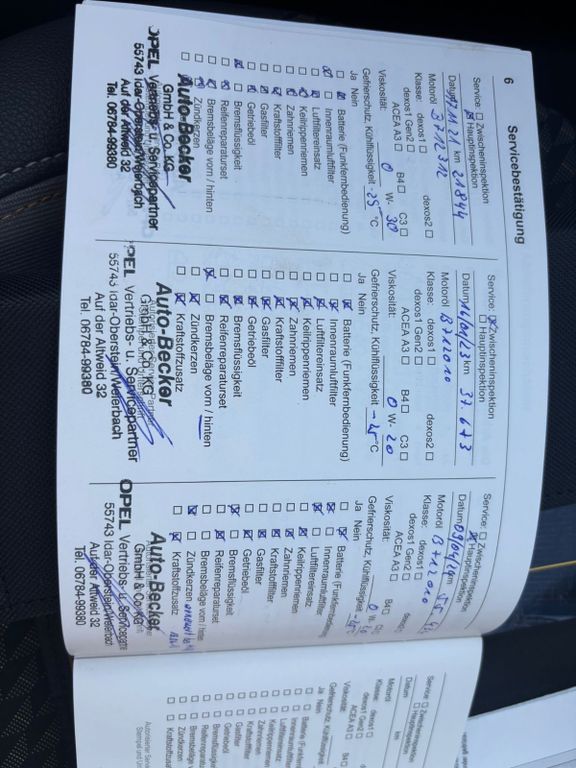 6 Servicebestätigung
Service: ☐ Zwischeninspektion
☒ Hauptinspektion
km 21844
Motoröl B712312
Klasse: dexos1 ☐ dexos2 ☐
dexos1 Gen2 ☐
ACEA A3 ☐ B4 ☐ C3 ☐
Viskosität: 0 W- 30
Gefrierschutz, Kühlflüssigkeit -25 °C
Ja Nein
Batterie (Funkfernbedienung)
Innenraumluftfilter
Luftfiltereinsatz
Keilrippenriemen
Zahnriemen
Kraftstofffilter
Gasfilter
Getriebeöl
Bremsflüssigkeit
Reifenreparaturset
Bremsbeläge vorn / hinten
Zündkerzen
Auto-Becker
GmbH & Co. KG
OPEL Vertriebs- u. Servicepartner
55743 Idar-Oberstein/Weierbach
Auf der Altweid 32
Tel. 06784-99380
Service: ☒ Zwischeninspektion
☐ Hauptinspektion
Datum 16/01/23 km 37.673
Motoröl B712010
Klasse: dexos1 ☐ dexos2 ☐
dexos1 Gen2 ☐
ACEA A3 ☐ B4 ☐ C3 ☐
Viskosität: 0 W- 20
Gefrierschutz, Kühlflüssigkeit -25 °C
Ja Nein
Batterie (Funkfernbedienung)
Innenraumluftfilter
Luftfiltereinsatz
Keilrippenriemen
Zahnriemen
Kraftstofffilter
Gasfilter
Getriebeöl
Bremsflüssigkeit
Reifenreparaturset
Bremsbeläge vorn / hinten
Zündkerzen
Kraftstoffzusatz
Auto-Becker
GmbH & Co. KG
OPEL Vertriebs- u. Servicepartner
55743 Idar-Oberstein/Weierbach
Auf der Altweid 32
Tel. 06784-99380
Service: ☐
☒ Hauptinspektion
Datum km
Motoröl B712010
Klasse: dexos1 ☐
dexos1 Gen2 ☐
ACEA A3 ☐ B4 ☐
Viskosität: 0 W-
Gefrierschutz, Kühlflüssigkeit
Ja Nein
Batterie
Innenraumluftfilter
Luftfiltereinsatz
Keilrippenriemen
Zahnriemen
Kraftstofffilter
Gasfilter
Getriebeöl
Bremsflüssigkeit
Reifenreparaturset
Bremsbeläge vorn /
Zündkerzen
Kraftstoffzusatz
Auto-Becker
GmbH & Co. KG
OPEL Vertriebs- u.
55743 Idar-Oberstein/Weierbach
Auf der Altweid 32
Tel. 06784-99380
Service: ☐ Zwischeninspektion
☐ Hauptinspektion
Datum km
Motoröl
Klasse: dexos1 ☐
dexos1 Gen2 ☐
ACEA A3 ☐ B4
Viskosität:
Gefrierschutz, Kühlflüssigkeit
Ja Nein
Batterie
Innenraumluftfilter
Luftfiltereinsatz
Keilrippenriemen
Zahnriemen
Kraftstofffilter
Gasfilter
Getriebeöl
Bremsflüssigkeit
Zündkerzen
Autorisierter Service
Stempel und